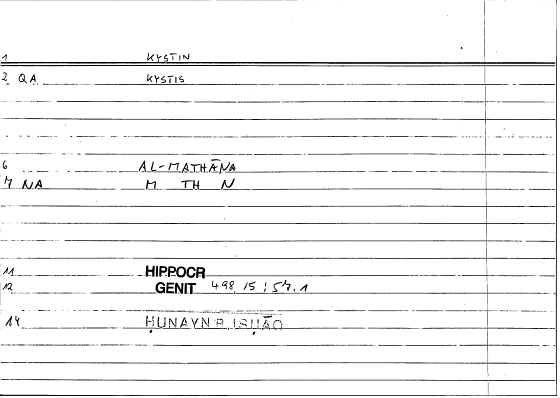 1 KYSTIN
2 QA KYSTIS
6 AL-MATHĀNA
7 NA M TH N
11 HIPPOCR
12 GENIT 498,15 : 57.1
14 ḤUNAYN B. ISḤĀQ